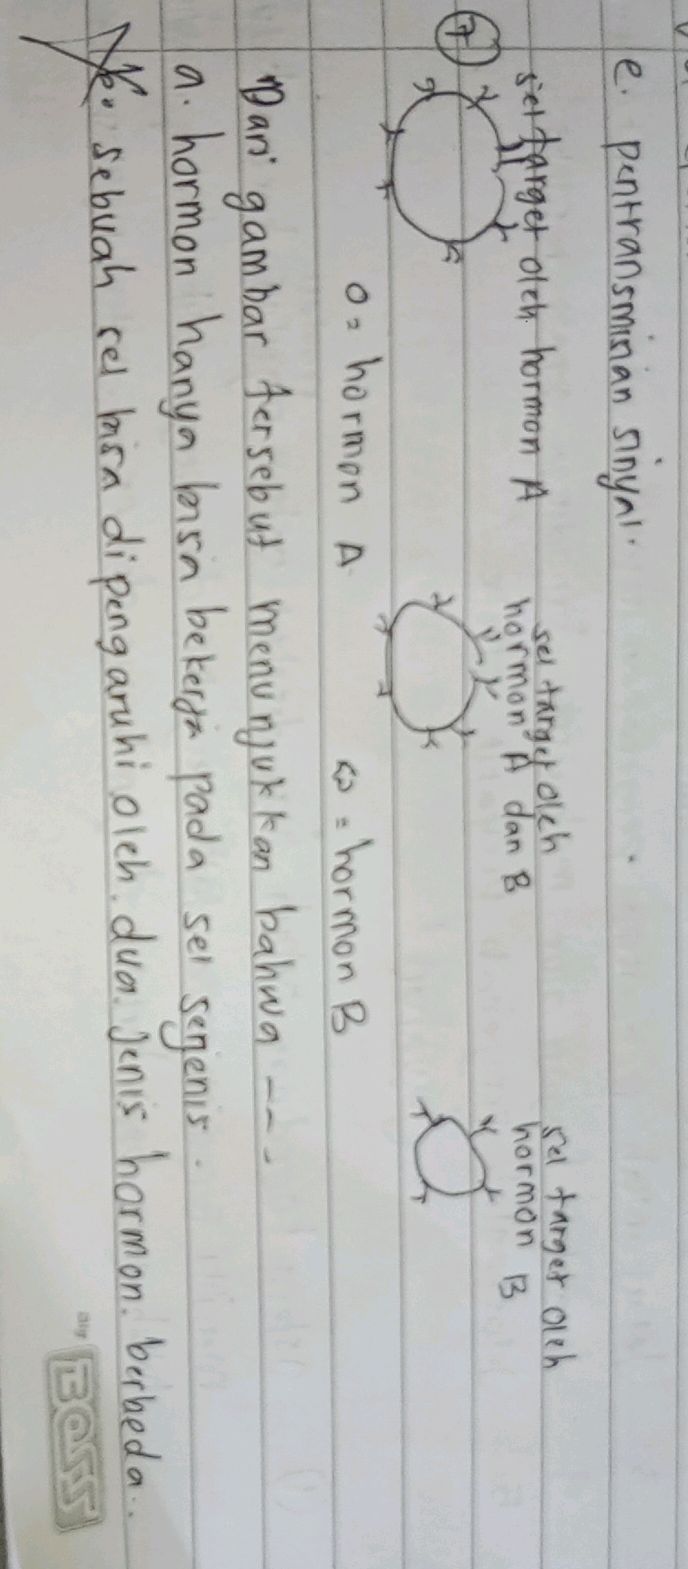 e. pentransmisian sinyal.
7
sel target oleh hormon A
sel target oleh
hormon A dan B
sel target oleh
hormon B
O = hormon A
= hormon B
Dari gambar tersebut menunjukkan bahwa ---.
a. hormon hanya bisa bekerja pada sel sejenis.
sebuah sel bisa dipengaruhi oleh dua jenis hormon berbeda..
BOSS